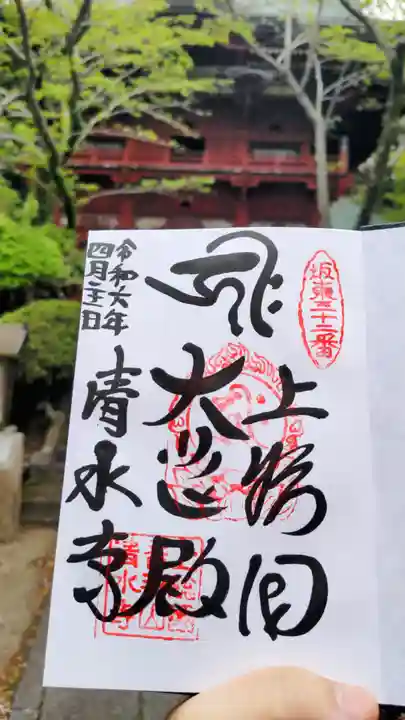 坂東三十二番
上総国
大悲殿
清水寺
令和六年
四月十三日
清水寺